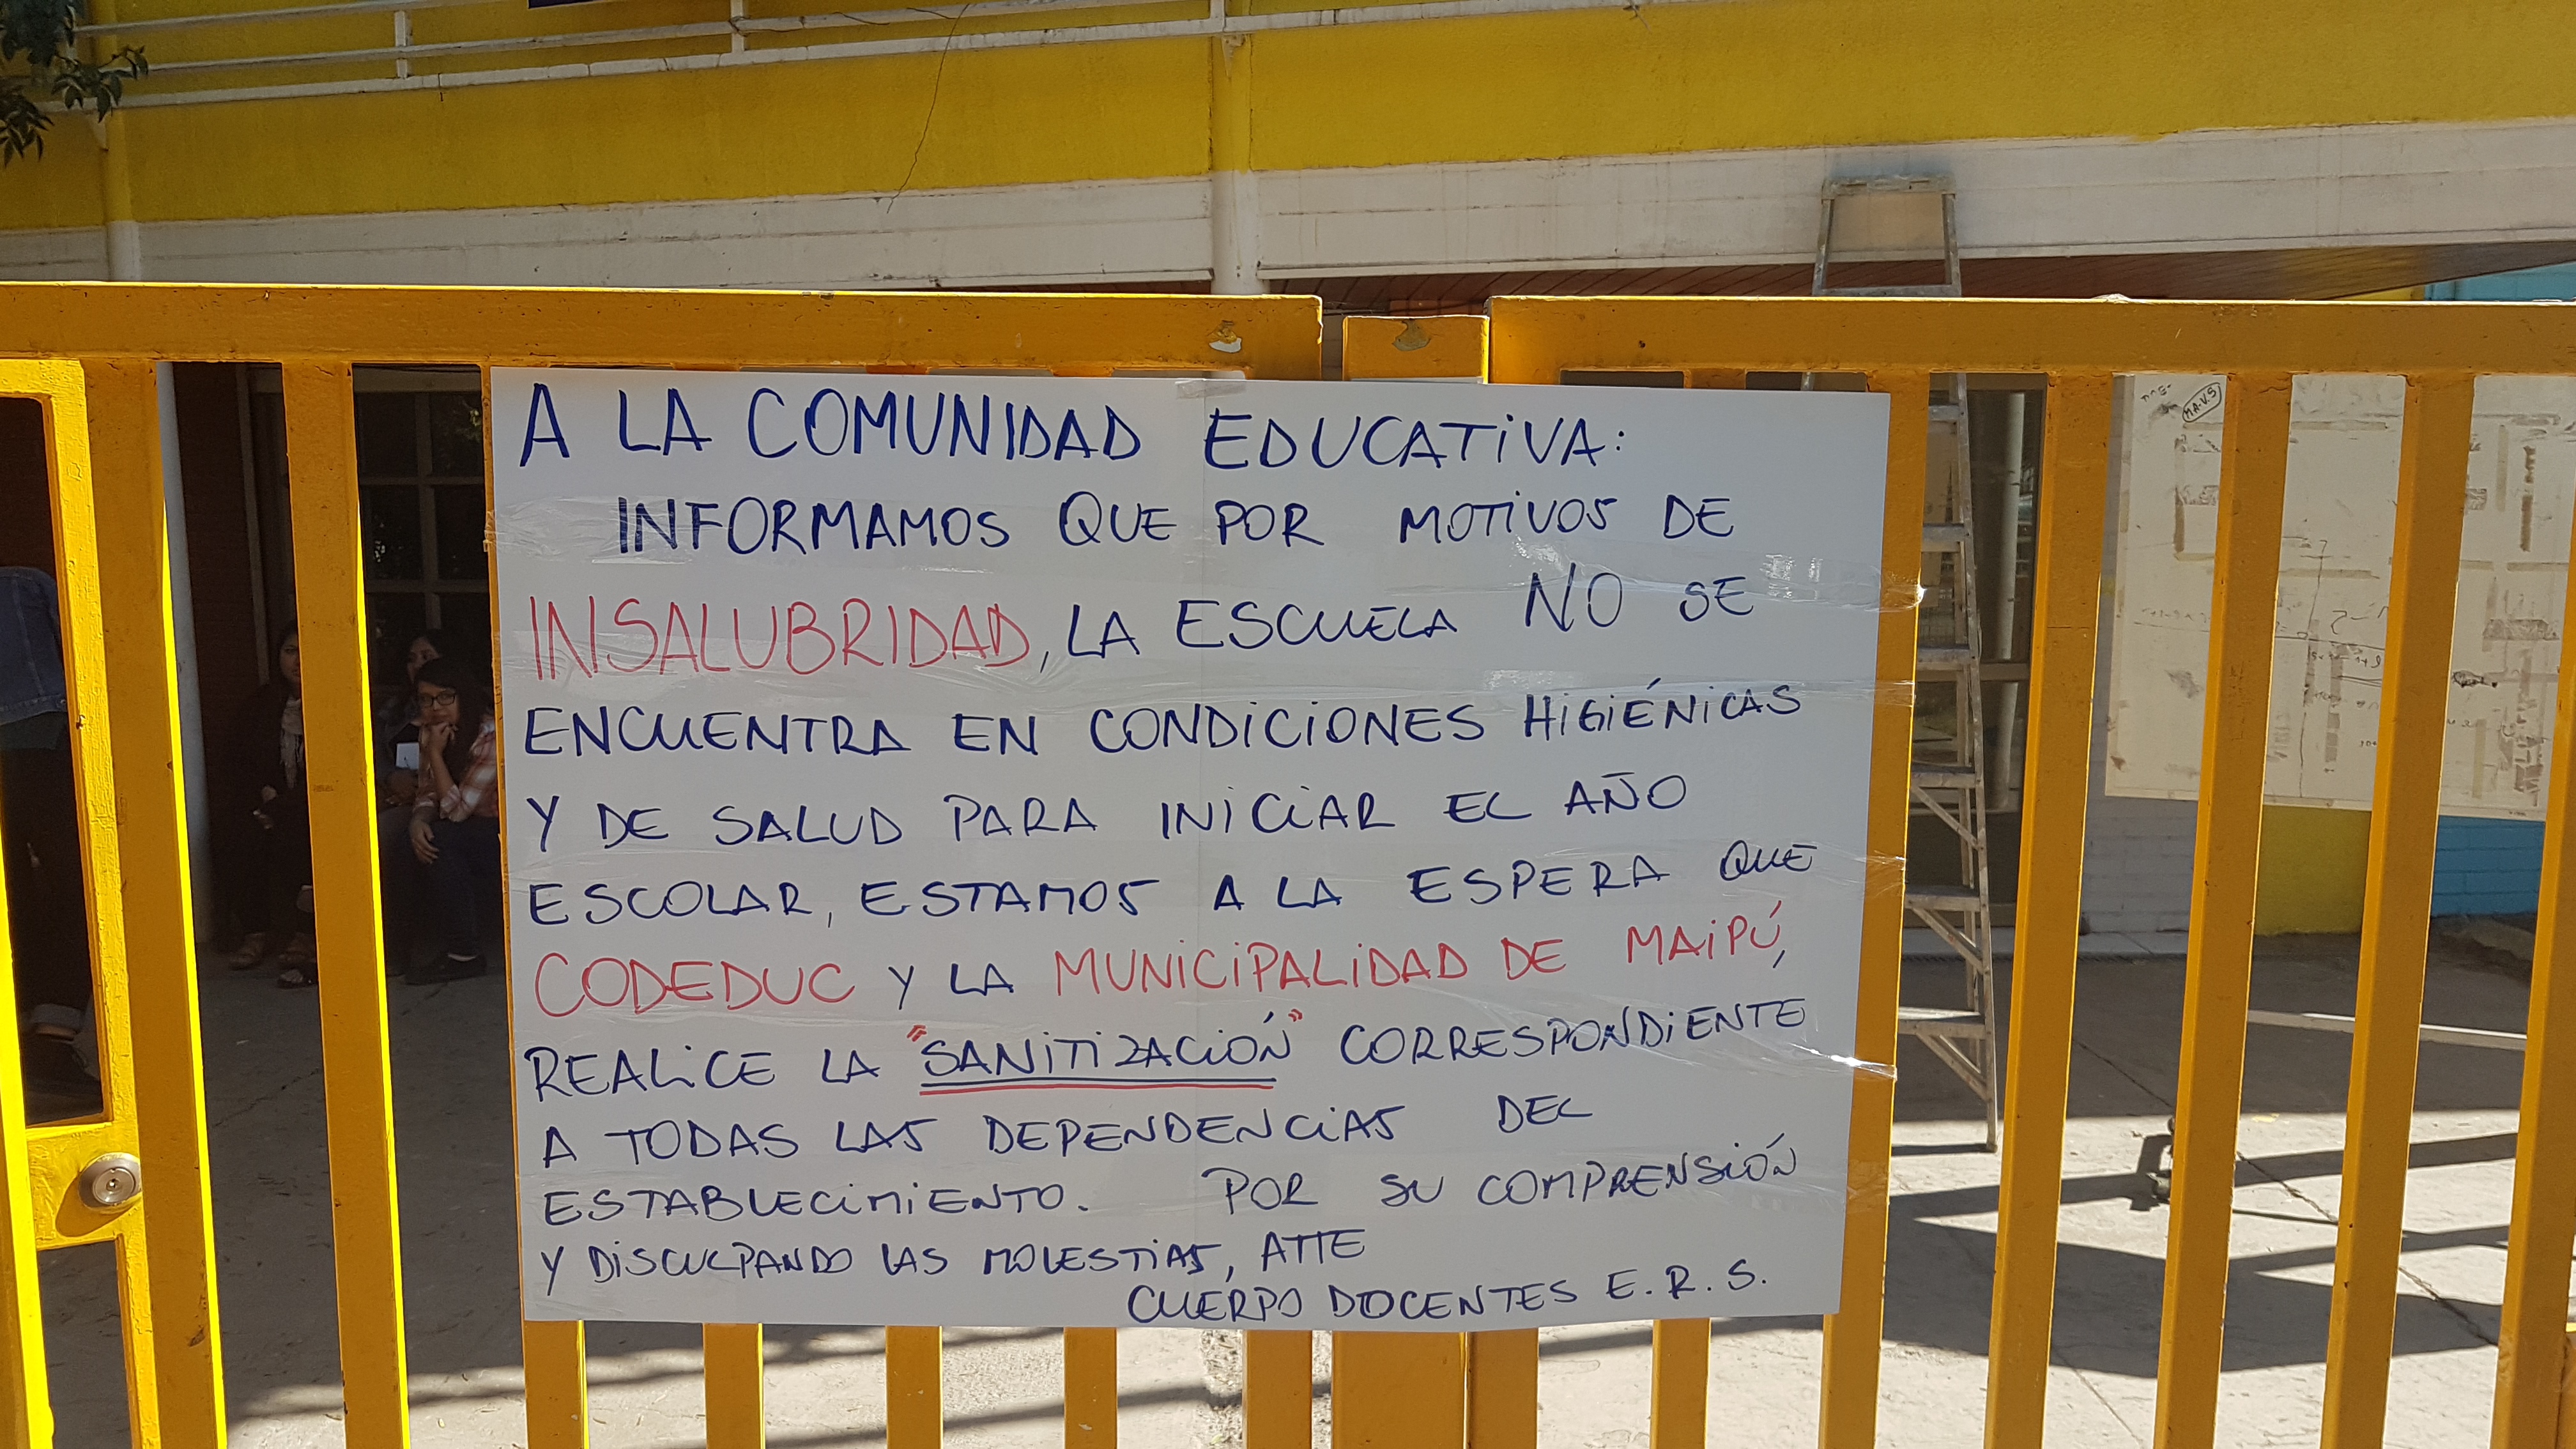 A LA COMUNIDAD EDUCATIVA:
INFORMAMOS QUE POR MOTIVOS DE
INSALUBRIDAD, LA ESCUELA NO SE
ENCUENTRA EN CONDICIONES HIGIÉNICAS
Y DE SALUD PARA INICIAR EL AÑO
ESCOLAR, ESTAMOS A LA ESPERA QUE
CODEDUC Y LA MUNICIPALIDAD DE MAIPÚ,
REALICE LA "SANITIZACIÓN" CORRESPONDIENTE
A TODAS LAS DEPENDENCIAS DEL
ESTABLECIMIENTO. POR SU COMPRENSIÓN
Y DISCULPANDO LAS MOLESTIAS, ATTE
CUERPO DOCENTES E.R.S.
M.A.V.S